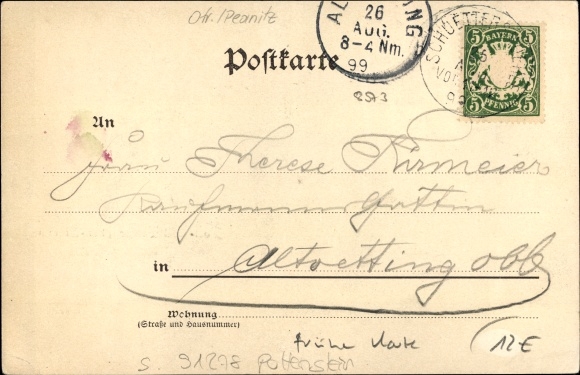 Otr./Pegnitz
AL
NG
26
AUG.
8-4 Nm.
99
SCHUETTERS
VOR
BAYERN
5 5
5 5
PFENNIG
Postkarte
2573
An
Frau Therese Kirmeier
Kaufmanns Gattin
in Altoetting obb
Wohnung
(Straße und Hausnummer)
frühe Karte
12€
S. 91278 Pottenstein